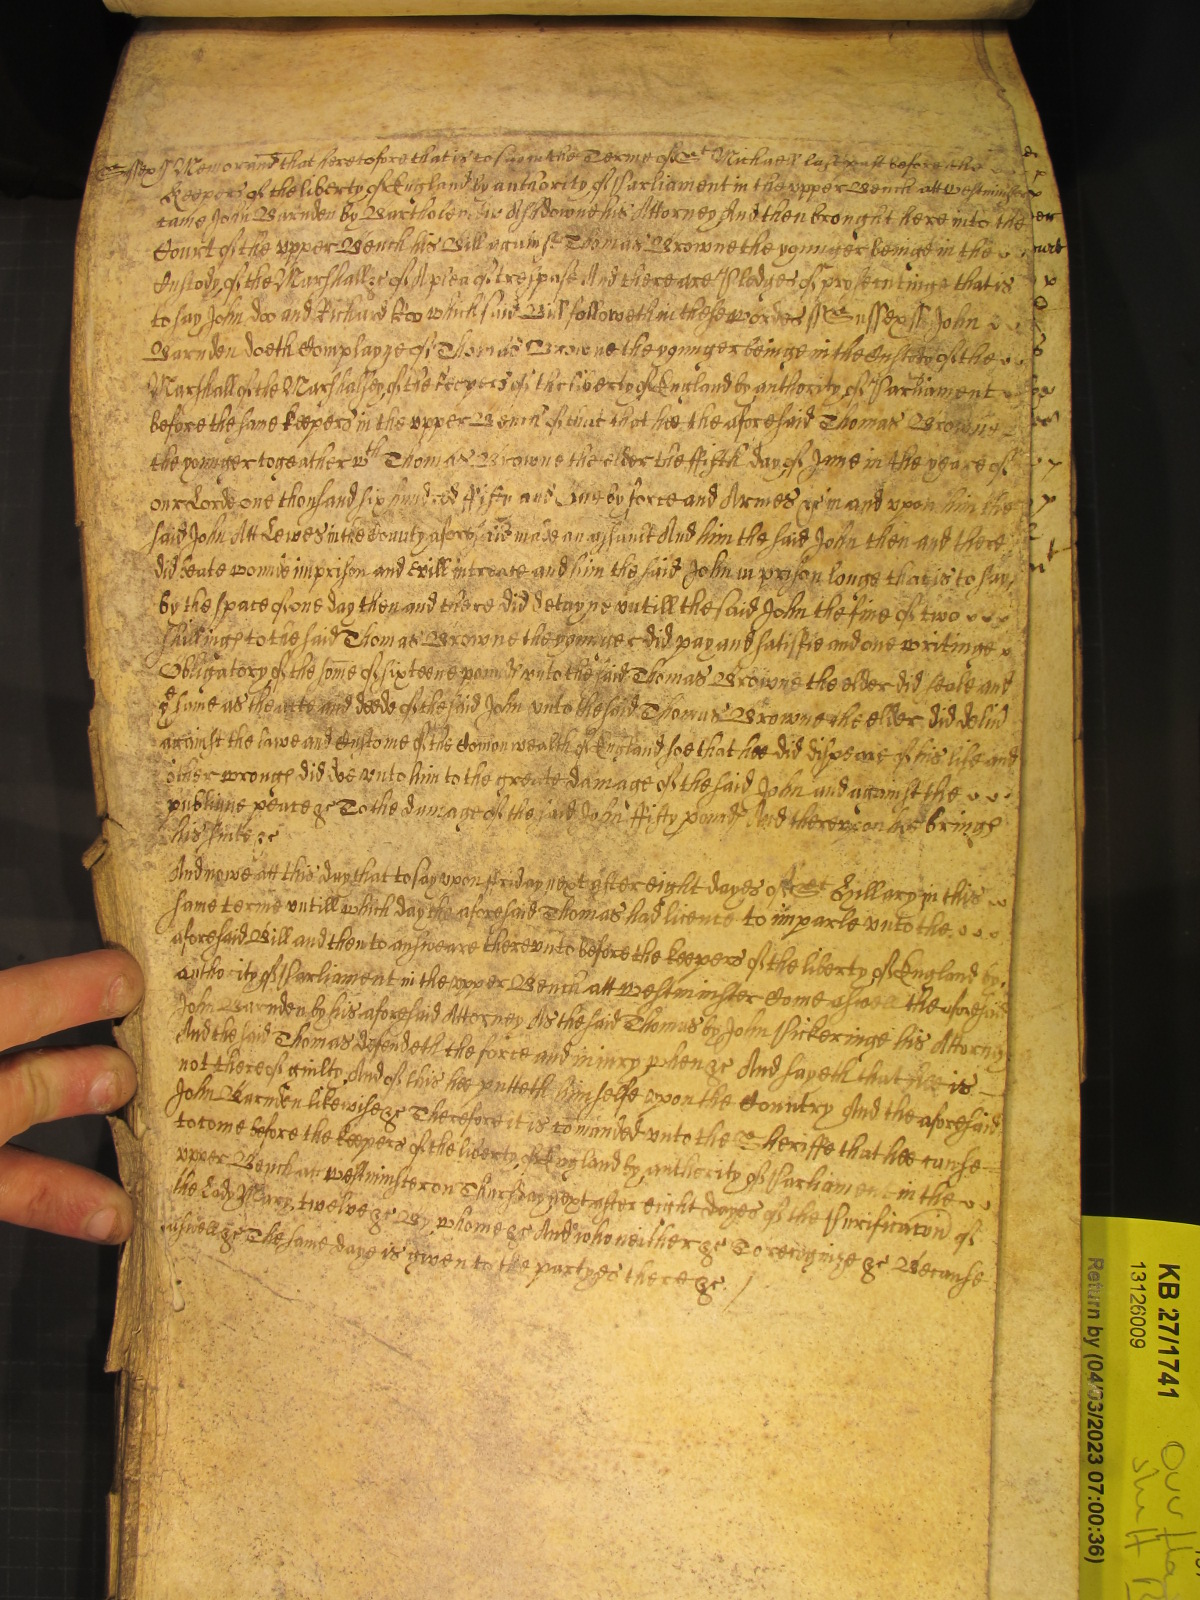 Sussex ss Memorand that heretofore that is to say in the Terme of St Michaell last past before the
Keepers of the liberty of England by authority of Parliament in the upper Bench att Westminster
came John Barnden by Bartholomew Ashdowne his Attorney And then brought here into the
Court of the upper Bench his Bill against Thomas Browne the younger beinge in the
Custody of the Marshall &c of A plea of trespass And there are Pledges of prosecutinge that is
to say John doo and Richard Roo which said Bill followeth in these wordes ss Sussex ss John
Barnden doeth Complayne of Thomas Browne the younger beinge in the Custody of the
Marshall of the Marshalsey of the keepers of the liberty of England by authority of Parliament
before the same keepers in the upper Bench of that that hee the aforesaid Thomas Browne
the younger togeather wth Thomas Browne the elder the ffifth day of June in the yeare of
our Lorde one thousand six hundred ffifty and One by force and Armes &c in and upon him the
said John Att Lewes in the County aforesaid made an assault And him the said John then and there
did beate wound imprison and Evill intreate and him the said John in prison longe that is to say
by the space of one day then and there did detayne untill the said John the fine of two
shillings to the said Thomas Browne the younger did pay and satisfie and one writinge
Obligatory of the some of sixteene pounds unto the said Thomas Browne the elder did seale and
the same as the acte and deede of the said John unto the said Thomas Browne the elder did delivd
against the lawe and Custome of the Comon wealth of England soe that hee did dispeare of his life and
other wrongs did doe unto him to the greate damage of the said John and against the
publique peace &c To the damage of the said John ffifty pound And thereupon hee brings
his suite &c
And nowe att this day that to say upon ffriday next after eight dayes of St Hillary in this
same terme untill which day the aforesaid Thomas had licence to imparle unto the
aforesaid Bill and then to answeare thereunto before the keepers of the liberty of England by
authority of Parliament in the upper Bench att Westminster Come aswell the aforesaid
John Barnden by his aforesaid Attorney As the said Thomas by John Pickeringe his Attorney
And the said Thomas defendeth the force and iniury when &c And sayeth that hee is
not thereof guilty And of this hee putteth himselfe upon the Country And the aforesaid
John Barnden likewise &c Therefore it is comanded unto the Sheriffe that hee cause
to come before the keepers of the liberty of England by authority of Parliament in the
upper Bench at Westminster on Thursday next after eight dayes of the Purificacon of
the Lady Mary, twelve &c By whome &c And who neither &c To recognize &c Because
aswell &c The same daye is given to the partyes there &c
KB 27/1741
13126009
Return by (04/03/2023 07:00:36)